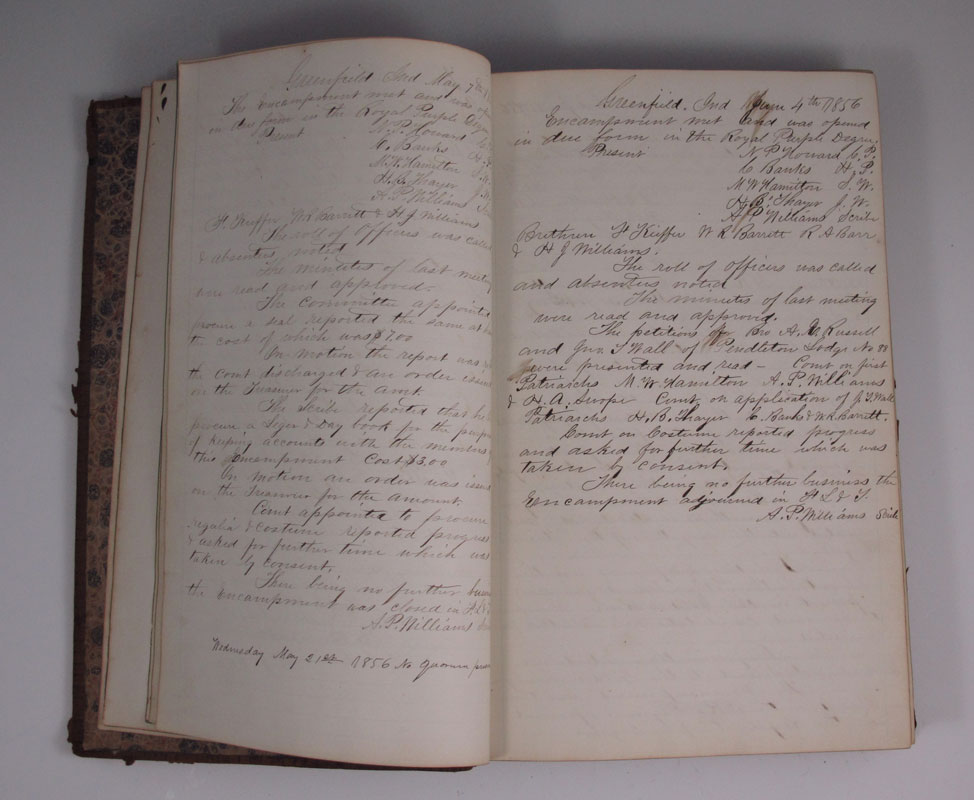 Greenfield Ind May 7th
The Encampment met and was
in due form in the Royal Purple Degree
Present N. P. Howard
C. Banks H. P.
M. W. Hamilton S. W.
H. B. Thayer J. W.
A. P. Williams
F. Kieffer W R Barrett & H J Williams
The roll of Officers was called
& absentees noted
The minutes of last meeting
were read and approved.
The committee appointed
procure a seal reported the same
the cost of which was $7.00
On motion the report was
the comt discharged & an order
on the Treasurer for the amt.
The Scribe reported that he
procure a Leger & Day book for the
of keeping accounts with the members
this Encampment Cost $3.00
On motion an order was
on the Treasurer for the amount.
Comt appointed to procure
regalia & Costume reported progress
& asked for further time which was
taken by consent.
There being no further
the Encampment was closed in F. L &
A. P. Williams
Wednesday May 21st 1856 No quorum
Greenfield, Ind June 4th 1856
Encampment met and was opend
in due form in the Royal Purple Degree.
Present N. P. Howard C. P.
C Banks H. P.
M W Hamilton S. W.
H. B. Thayer J. W.
A. P. Williams Scribe
Brethren F Kieffer W R Barrett R A Barr
& H J Williams.
The roll of officers was called
and absentees noted
The minutes of last meeting
were read and approved.
The petitions for Bro A. Russell
and Jno. T Wall of Pendleton Lodge No 88
were presented and read — Comt on first
Patriarchs M. W. Hamilton A. P. Williams
& H. A. Swope Comt. on application of J. T. Wall
Patriarchs H. B. Thayer C. Banks & W R Barrett.
Comt on Costume reported progress
and asked for further time which was
taken by consent.
There being no further business the
Encampment adjourned in F L & T.
A. P. Williams Scribe